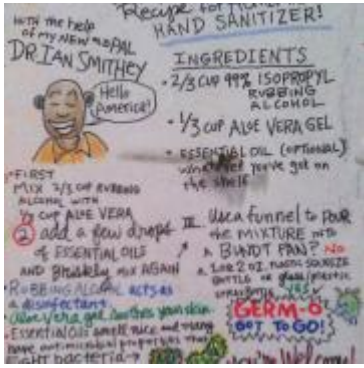 Recipe for
HAND SANITIZER!
with the help
of my NEW PAL
DR. IAN SMITHEY
Hello
America!
INGREDIENTS
• 2/3 CUP 99% ISOPROPYL
RUBBING
ALCOHOL
• 1/3 CUP ALOE VERA GEL
• ESSENTIAL OIL (OPTIONAL)
whatever you've got on
the shelf
• FIRST
MIX 2/3 CUP RUBBING
ALCOHOL with
1/3 CUP ALOE VERA
2 add a few drops
of ESSENTIAL OILS
AND Briskly MIX AGAIN
III Use a funnel to POUR
the MIXTURE into
a BUNDT PAN? NO
a 1 OR 2 OZ. PLASTIC SQUEEZE
BOTTLE or glass/plastic
YES
• RUBBING ALCOHOL ACTS AS
a disinfectant
• Aloe Vera gel soothes your skin
• Essential Oils smell nice and many
have antimicrobial properties that
FIGHT bacteria →
GERM-O
GOT TO GO!
you're Welcome!